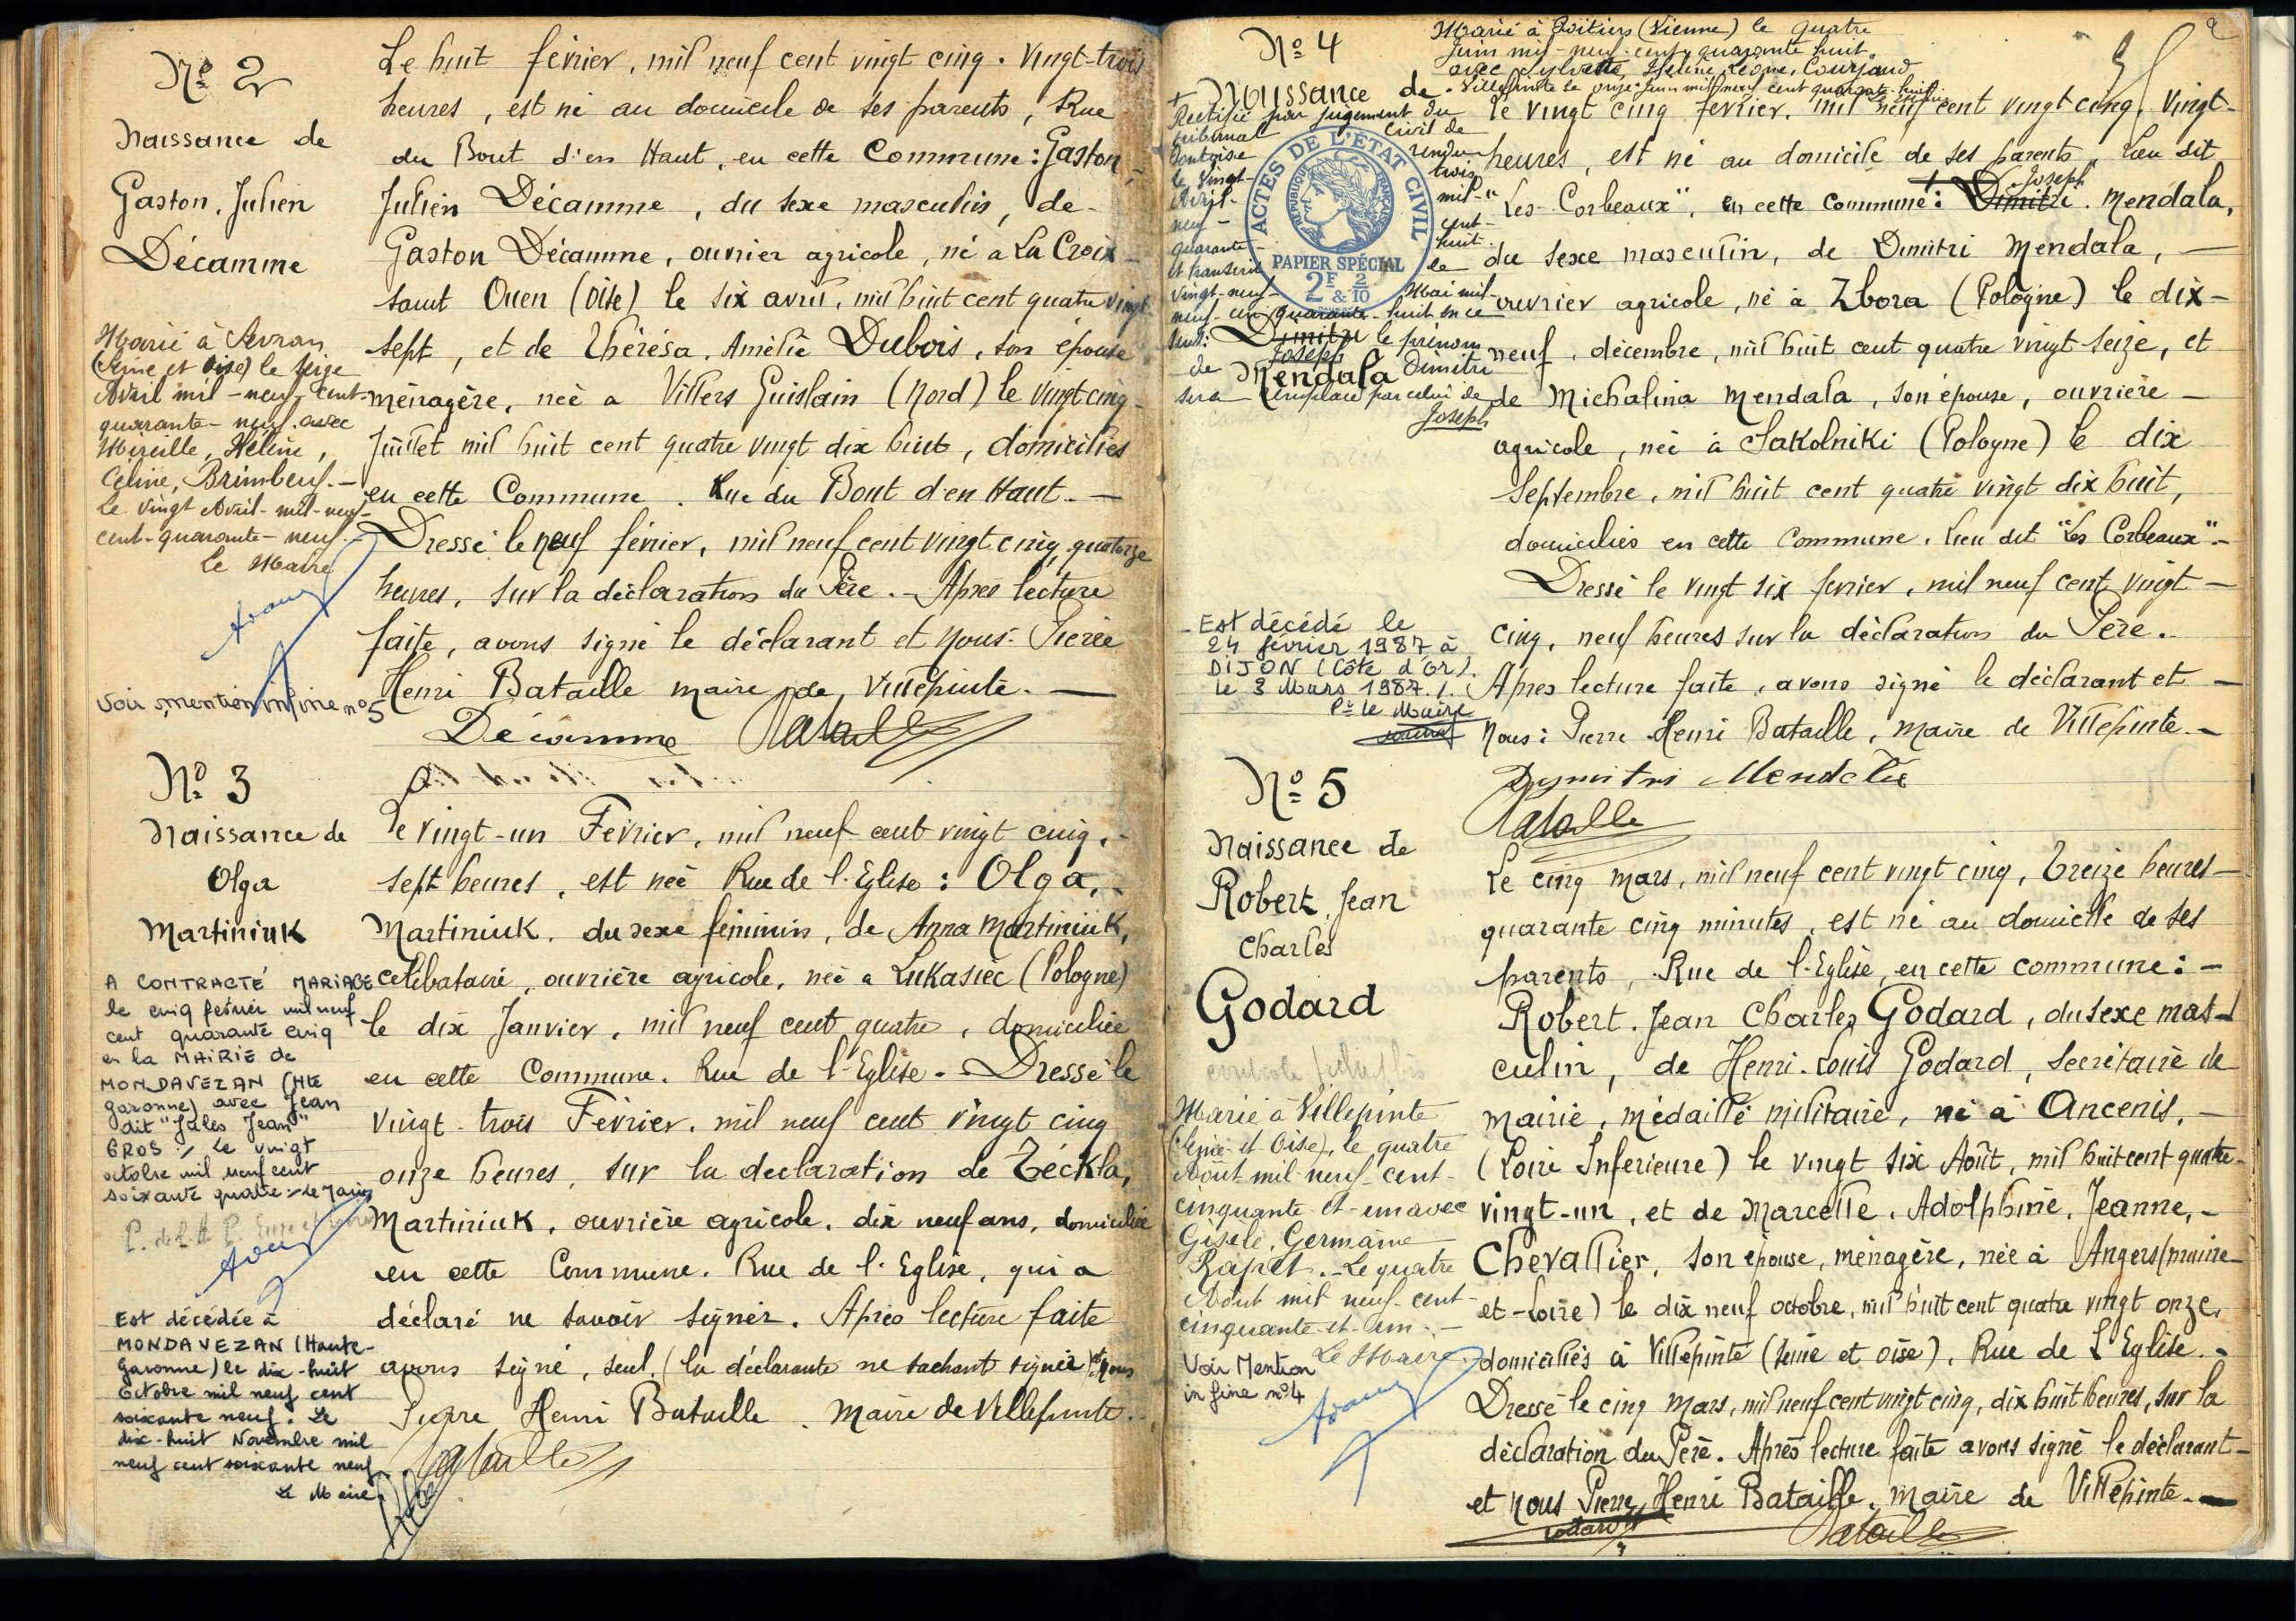 Nº 2
Naissance de
Gaston, Julien
Décamme
Marié à Sevran
(Seine et Oise) le seize
Avril mil-neuf-cent-
quarante-neuf avec
Mireille, Hélène,
Céline, Brimbeuf.-
Le vingt Avril-mil-neuf-
cent-quarante-neuf.-
Le Maire
Voir mention in fine nº5
Le huit février, mil neuf cent vingt cinq. Vingt-trois
heures, est né au domicile de ses parents, Rue
du Bout d'en Haut, en cette Commune: Gaston,
Julien Décamme, du sexe masculin, de-
Gaston Décamme, ouvrier agricole, né a La Croix-
saint Ouen (Oise) le six avril, mil huit cent quatre vingt
sept, et de Thérésa, Amélie Dubois, son épouse
ménagère, née a Villers Guislain (Nord) le vingt cinq-
Juillet mil huit cent quatre vingt dix huit, domiciliés
en cette Commune. Rue du Bout d'en Haut.-
Dressé le neuf février, mil neuf cent vingt cinq, quatorze
heures, sur la déclaration du Père.- Après lecture
faite, avons signé le déclarant et nous: Pierre
Henri Bataille maire de Villepinte.-
Décamme Bataille
Nº 3
Naissance de
Olga
Martiniuk
A CONTRACTÉ MARIAGE
le cinq février mil neuf
cent quarante cinq
en la MAIRIE de
MONDAVEZAN (Hte
garonne) avec Jean
dit "Jules Jean"
GROS ./. Le vingt
octobre mil neuf cent
soixante quatre:- Le Maire
Est décédée à
MONDAVEZAN (Haute-
Garonne) le dix-huit
Octobre mil neuf cent
soixante neuf. Le
dix-huit Novembre mil
neuf cent soixante neuf
Le Maire
Le vingt-un Février, mil neuf cent vingt cinq,
sept heures, est née Rue de l'Eglise: Olga,
Martiniuk, du sexe féminin, de Anna Martiniuk,
célibataire, ouvrière agricole, née a Lukasiec (Pologne)
le dix Janvier, mil neuf cent quatre, domiciliée
en cette Commune. Rue de l'Eglise.- Dressé le
vingt-trois Février, mil neuf cent vingt cinq
onze heures, sur la declaration de Téckla,
Martiniuk, ouvrière agricole, dix neuf ans, domiciliée
en cette Commune. Rue de l'Eglise, qui a
déclaré ne savoir signer. Après lecture faite
avons signé, seul, (la déclarante ne sachant signer) nous
Pierre Henri Bataille, Maire de Villepinte.
Bataille
Nº 4
Marié à Poitiers (Vienne) le quatre
Juin mil-neuf-cent-quarante huit,
avec Sylvette, Hélène, Léone, Courjaud
Villepinte le onze Juin mil neuf cent quarante-huit
Le Maire
2
Naissance de
+ Rectifié par jugement du
tribunal Civil de
Pontoise rendu
le vingt-trois
Avril-mil-
neuf-cent-
quarante-huit
et transcrit le
vingt-neuf Mai mil-
neuf-cent quarante-huit en ce
sens: Dimitri le prénom
Joseph
de Mendala Dimitri
sera remplacé par celui de
Joseph
ACTES DE L'ÉTAT CIVIL
RÉPUBLIQUE FRANÇAISE
PAPIER SPÉCIAL
2F & 2/10
Est décédé le
24 février 1987 à
DIJON (Côte d'Or).
le 3 Mars 1987./.
Pr le Maire
Le vingt cinq fevrier, mil neuf cent vingt cinq, Vingt-
heures, est né au domicile de ses parents, Lieu dit
"Les Corbeaux", en cette Commune: + Dimitri Joseph Mendala,
du sexe masculin, de Dimitri Mendala,-
ouvrier agricole, né à Zbora (Pologne) le dix-
neuf, décembre, mil huit cent quatre vingt seize, et
de Michalina Mendala, son épouse, ouvrière-
agricole, née à Sakolniki (Pologne) le dix
Septembre, mil huit cent quatre vingt dix huit,
domiciliés en cette Commune. Lieu dit "Les Corbeaux".-
Dressé le vingt six fevrier, mil neuf cent vingt-
cinq, neuf heures sur la déclaration du Père.
Après lecture faite, avons signé le déclarant et-
Nous: Pierre Henri Bataille, Maire de Villepinte.-
Dymitri Mendala
Bataille
Nº 5
Naissance de
Robert, Jean
Charles
Godard
Marié à Villepinte
(Seine-et-Oise), le quatre
Août mil-neuf-cent-
cinquante-et-un avec
Gisèle, Germaine
Rapet.- Le quatre
Août mil neuf-cent-
cinquante-et-un.-
Le Maire
Voir Mention
in fine nº4
Le cinq mars, mil neuf cent vingt cinq, treize heures-
quarante cinq minutes, est né au domicile de ses
parents, Rue de l'Eglise, en cette commune:-
Robert, Jean Charles Godard, du sexe mas-
culin, de Henri-Louis Godard, Secrétaire de
mairie, médaillé militaire, né à Ancenis,-
(Loire Inferieure) le vingt six Août, mil huit cent quatre-
vingt-un, et de Marcelle, Adolphine, Jeanne,-
Chevallier, son épouse, ménagère, née à Angers (maine-
et-Loire) le dix neuf octobre, mil huit cent quatre vingt onze,
domiciliés à Villepinte (Seine et oise), Rue de L'Eglise.-
Dressé le cinq mars, mil neuf cent vingt cinq, dix huit heures, sur la
déclaration du Père. Après lecture faite avons signé le déclarant-
et nous Pierre, Henri Bataille, Maire de Villepinte.-
Godard Bataille